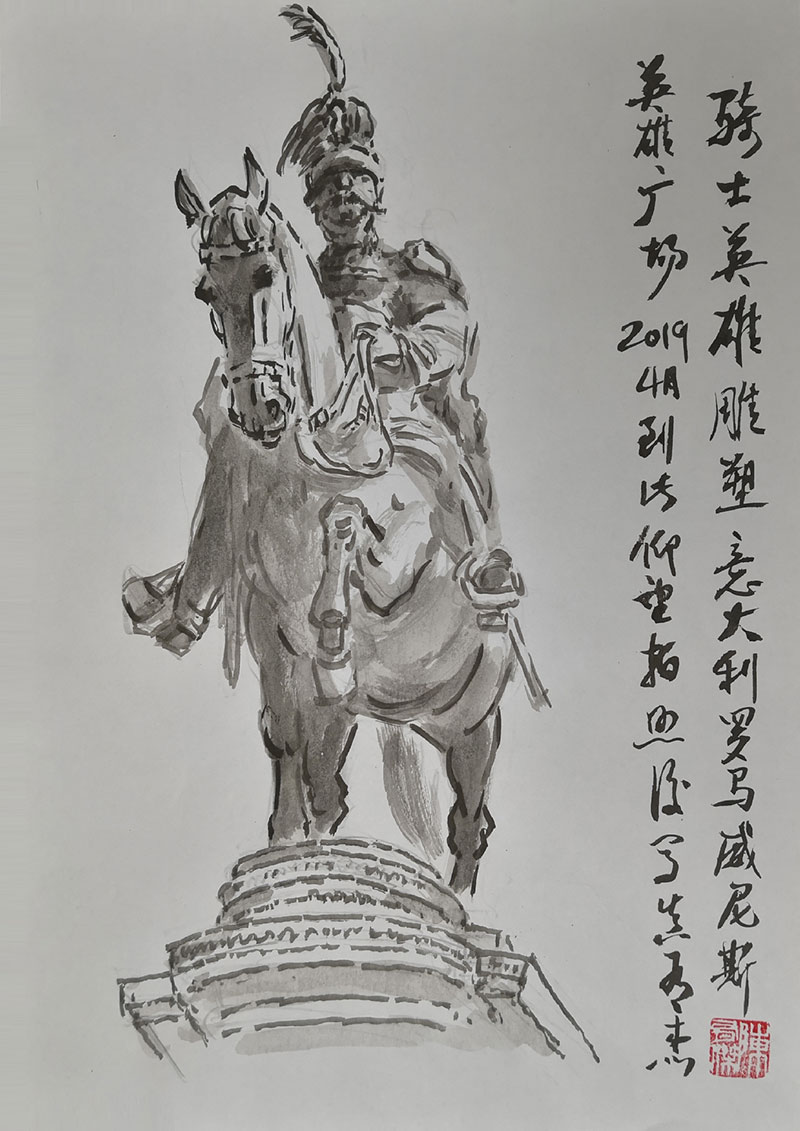 骑士英雄雕塑意大利罗马威尼斯
英雄广场2019 4月到此仰望拍照後写真有杰
陳有傑